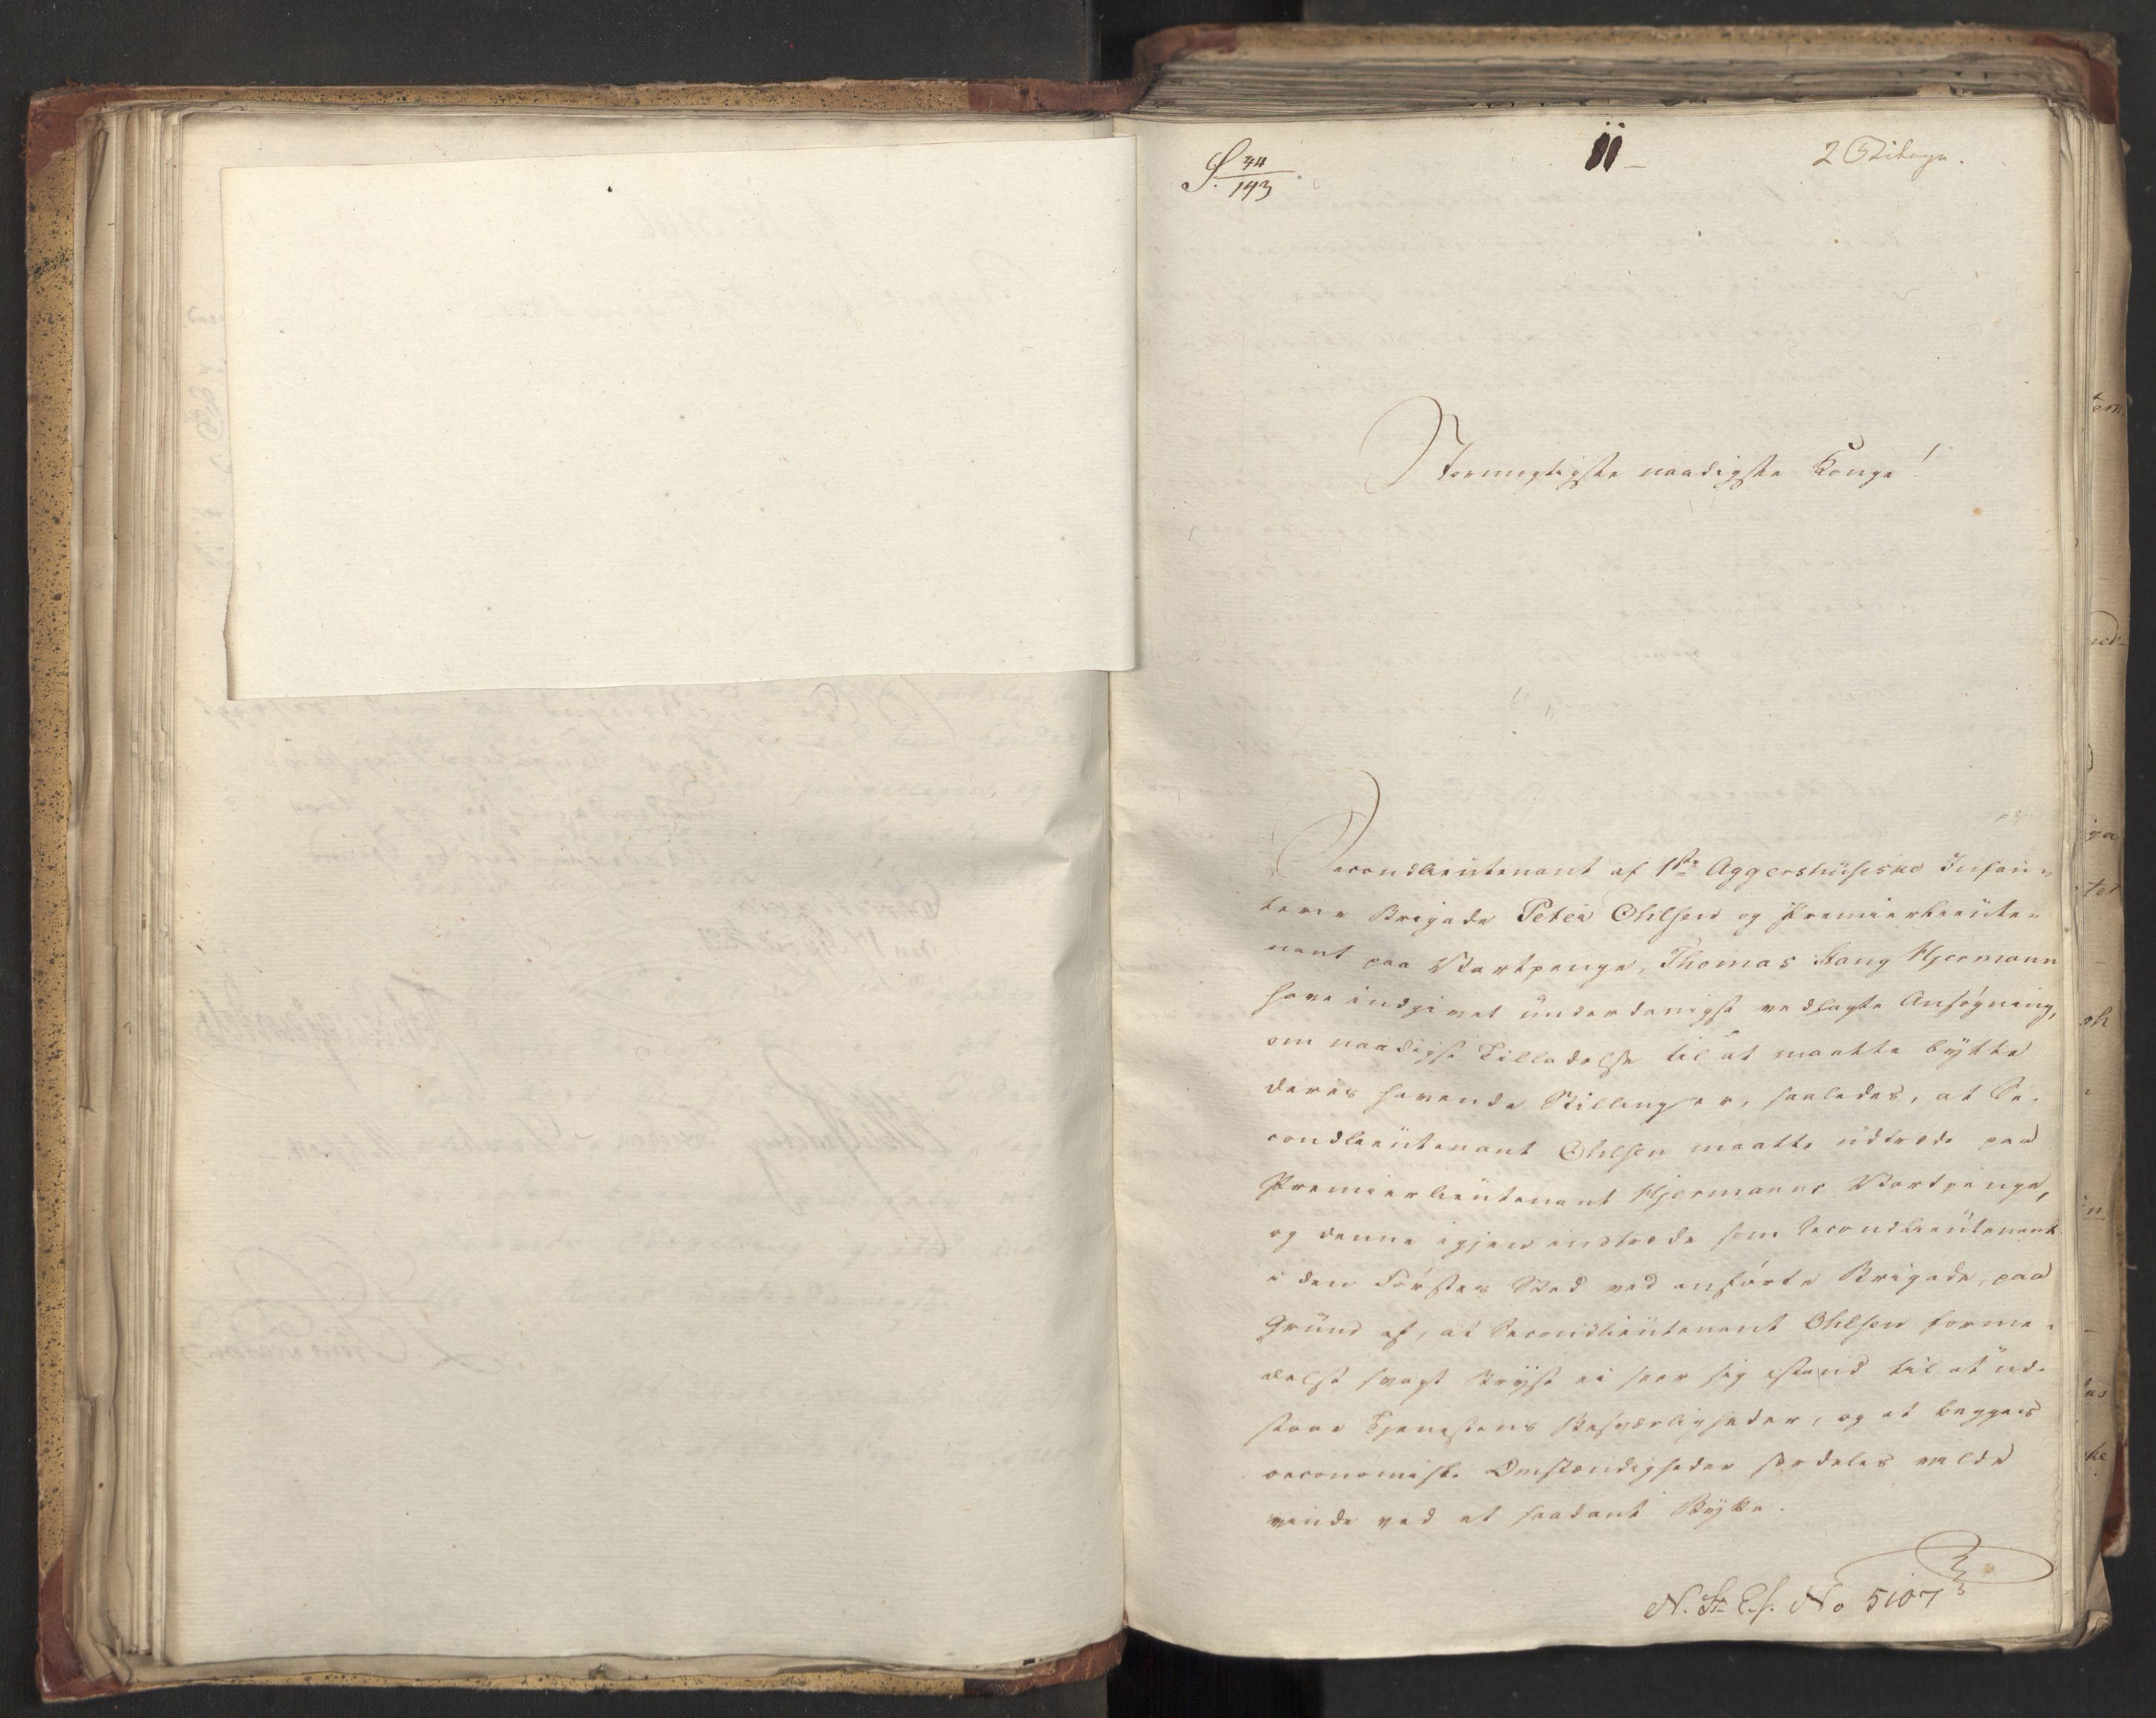 S. 44/143
11
2 Bilage.
Stormægtigste naadigste Konge!
Secondlieutenant af 1ste Aggershusiske Infan-
terie Brigade Peter Ohlsen og Premierlieute-
nant paa Vartpenge, Thomas Stang Hjermann
have indgivet underdanigst vedlagte Ansøgning,
om naadigst Tilladelse til at maatte bytte
deres havende Stillinger, saaledes, at Se-
condlieutenant Ohlsen maatte udtræde paa
Premierlieutenant Hjermanns Vartpenge,
og denne igjen indtræde som Secondlieutenant
i den Førstes Sted ved anførte Brigade, paa
Grund af, at Secondlieutenant Ohlsen forme-
delst svagt Bryst ei seer sig istand til at ud-
staae Tjenestens Besværligheder, og at begges
oeconomiske Omstændigheder særdeles vilde
vinde ved et saadant Bytte.
N. St. Ex. No 5107